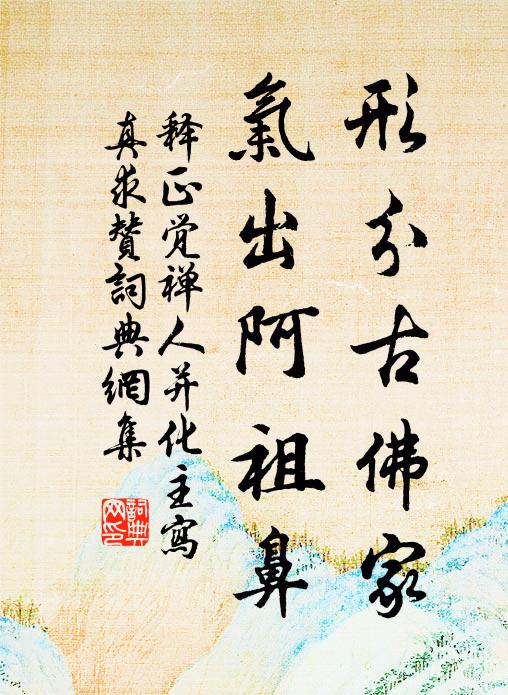 形分古佛家
氣出阿祖鼻
释正觉禅人并化主寫
真求賛詞典網集
詞典
网印